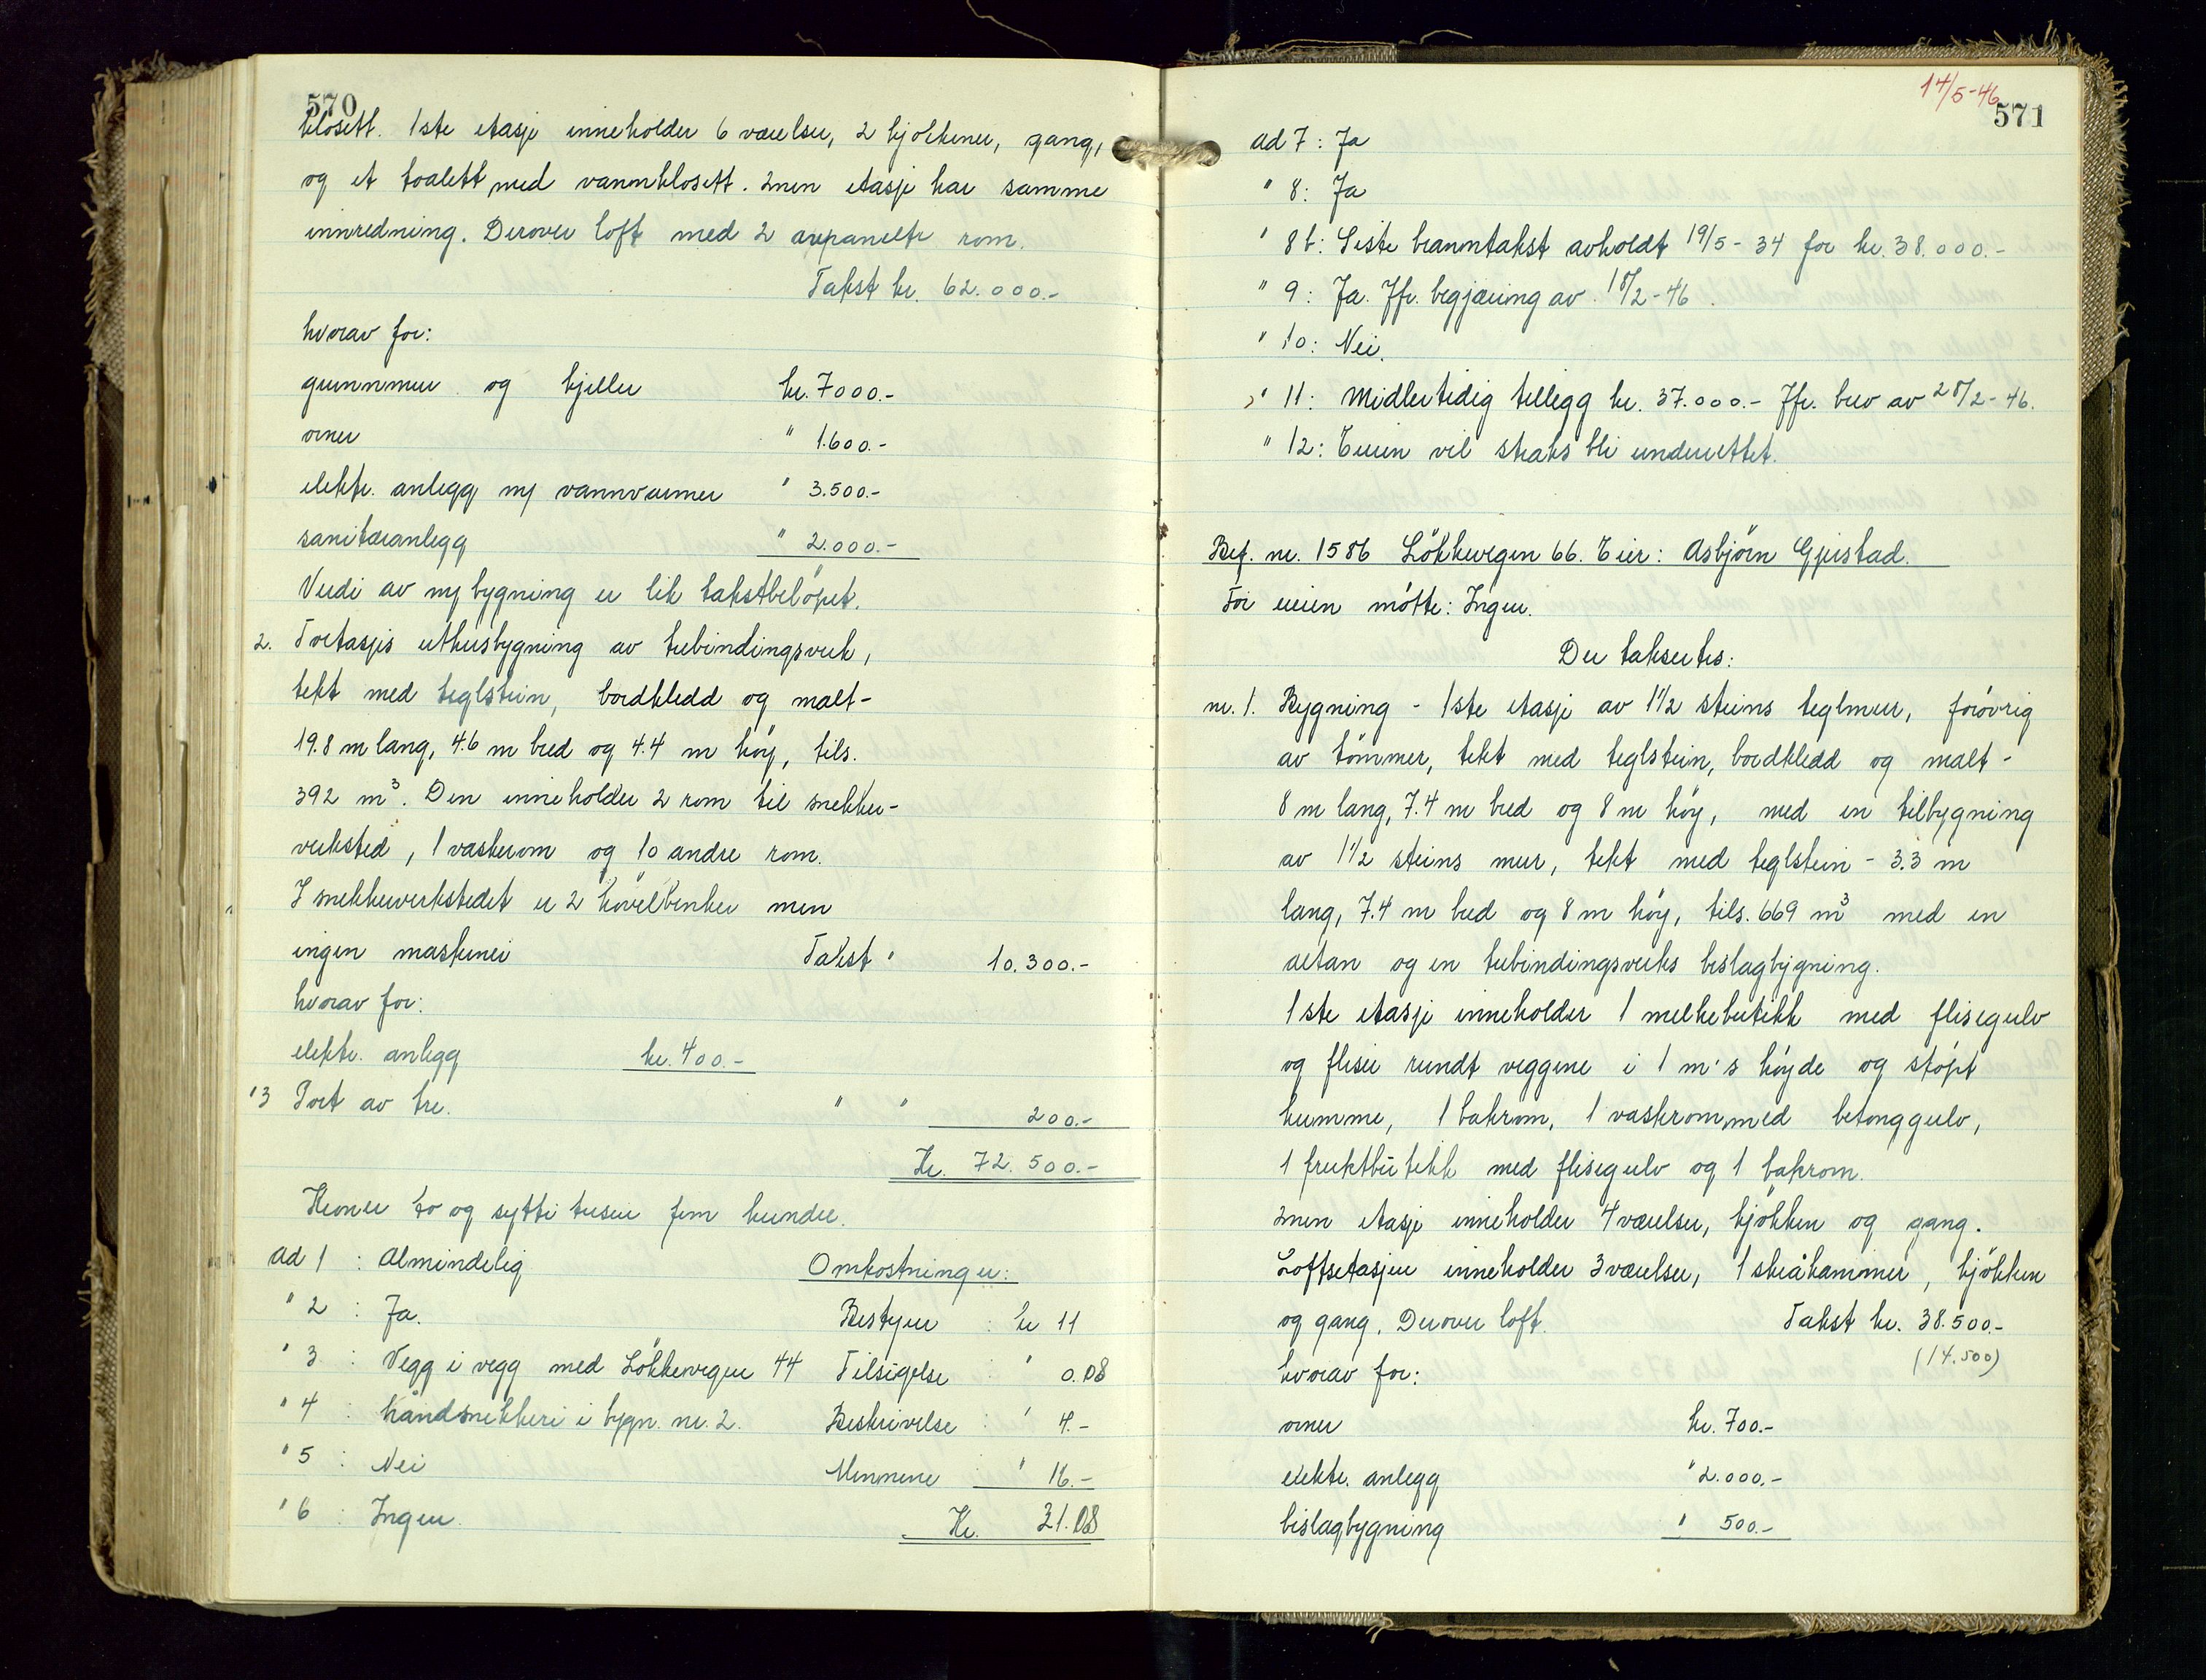 570
klosett. 1ste etasje inneholder 6 værelser, 2 kjøkkener, gang,
og et toalett med vannklosett. 2nen etasje har samme
innredning. Derover loft med 2 avpanelte rom.
Takst kr. 62.000.-
hvorav for:
grunnmur og kjeller kr. 7000.-
ovner " 1.600.-
elektr. anlegg m/ vannvarmer " 3.500.-
sanitæranlegg " 2.000.-
Verdi av ny bygning er lik takstbeløpet.
2. Toetasjes uthusbygning av utbindingsverk,
tekt med teglstein, bordkledd og malt-
19.8 m lang, 4.6 m bred og 4.4 m høy, tils.
392 m³. Den inneholder 2 rom til snekker-
verksted, 1 vaskerom og 10 andre rom.
I snekkerverkstedet er 2 høvelbenker men
ingen maskiner Takst " 10.300.-
hvorav for:
elektr. anlegg kr. 400.-
"3 Port av tre. " " 200.-
Kr. 72.500.-
Kroner to og sytti tusen fem hundre.
ad 1 : Almindelig Omkostninger:
" 2 : Ja. Bestyrer : kr 11
" 3 : Vegg i vegg med Løkkevegen 44 Tilsigelse " 0.08
" 4 : Håndsnekkeri i bygn. nr. 2. Beskrivelse : " 4.-
" 5 : Nei Mennene " 16.-
" 6 : Ingen. Kr. 31.08
14/5-46
571
ad 7 : Ja
" 8: Ja
" 8b: Siste branntakst avholdt 19/5 - 34 for kr. 38.000.-
" 9 : Ja. Jfr. begjæring av 18/2-46.
" 10: Nei.
" 11: Midlertidig tillegg kr. 37.000.- Jfr. brev av 28/2-46.
" 12: Eieren vil straks bli underrettet.
Bef. nr. 1586 Løkkevegen 66. Eier: Asbjørn Gjerstad.
For eieren møtte: Ingen.
Der takseres:
nr. 1. Bygning - 1ste etasje av 1 1/2 steins teglmur, forøvrig
av tømmer, tekt med teglstein, bordkledd og malt -
8 m lang, 7.4 m bred og 8 m høy, med en tilbygning
av 1 1/2 steins mur, tekt med teglstein - 3.3 m
lang, 7.4 m bred og 8 m høy, tils. 669 m³ med en
altan og en utbindingsverks bislagbygning.
1ste etasje inneholder 1 melkebutikk med flisegulv
og fliser rundt veggene i 1 m's høyde og støpt
kumme, 1 bakrom, 1 vaskerom med betonggulv,
1 fruktbutikk med flisegulv og 1 bakrom.
2nen etasje inneholder 4 værelser, kjøkken og gang.
Loftsetasjen inneholder 3 værelser, 1 skråkammer, kjøkken
og gang. Derover loft. Takst kr. 38.500.-
(14.500)
hvorav for:
ovner kr. 700.-
elektr. anlegg " 2.000.-
bislagbygning " 500.-